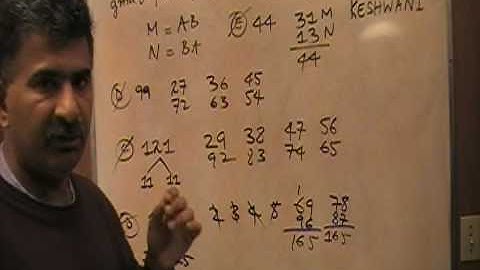 M = AB
N = BA
E 44
31 M
13 N
44
KESHWANI
D 99 27 36 45
72 63 54
121 29 38 47 56
92 83 74 65
11 11
2 3 4 5
1
69 78
96 87
165 165